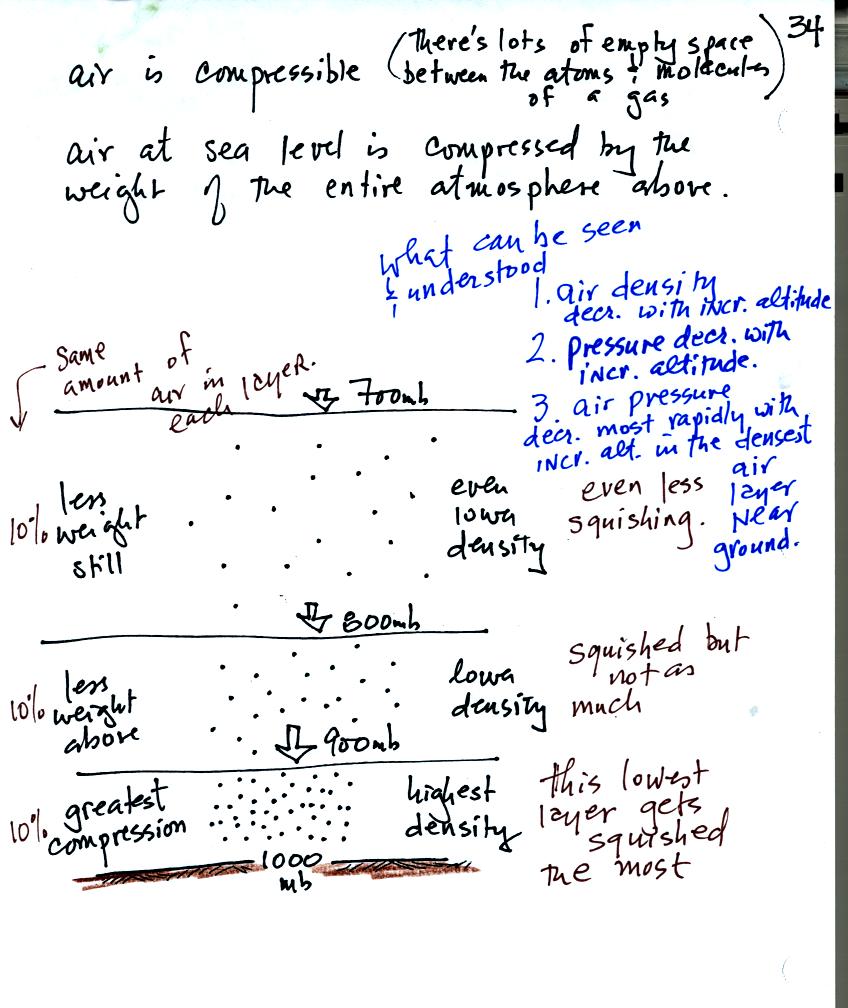 34
air is compressible (there's lots of empty space
between the atoms & molecules
of a gas)
air at sea level is compressed by the
weight of the entire atmosphere above.
what can be seen
& understood
1. air density
decr. with incr. altitude
2. Pressure decr. with
incr. altitude.
3. air pressure
decr. most rapidly with
incr. alt. in the densest
air
layer
near
ground.
Same
amount of
air in
each layer.
700mb
10% less
weight
still
even
lower
density
even less
squishing.
800mb
10% less
weight
above
lower
density
squished but
not as
much
900mb
10% greatest
compression
highest
density
this lowest
layer gets
squished
the most
1000
mb